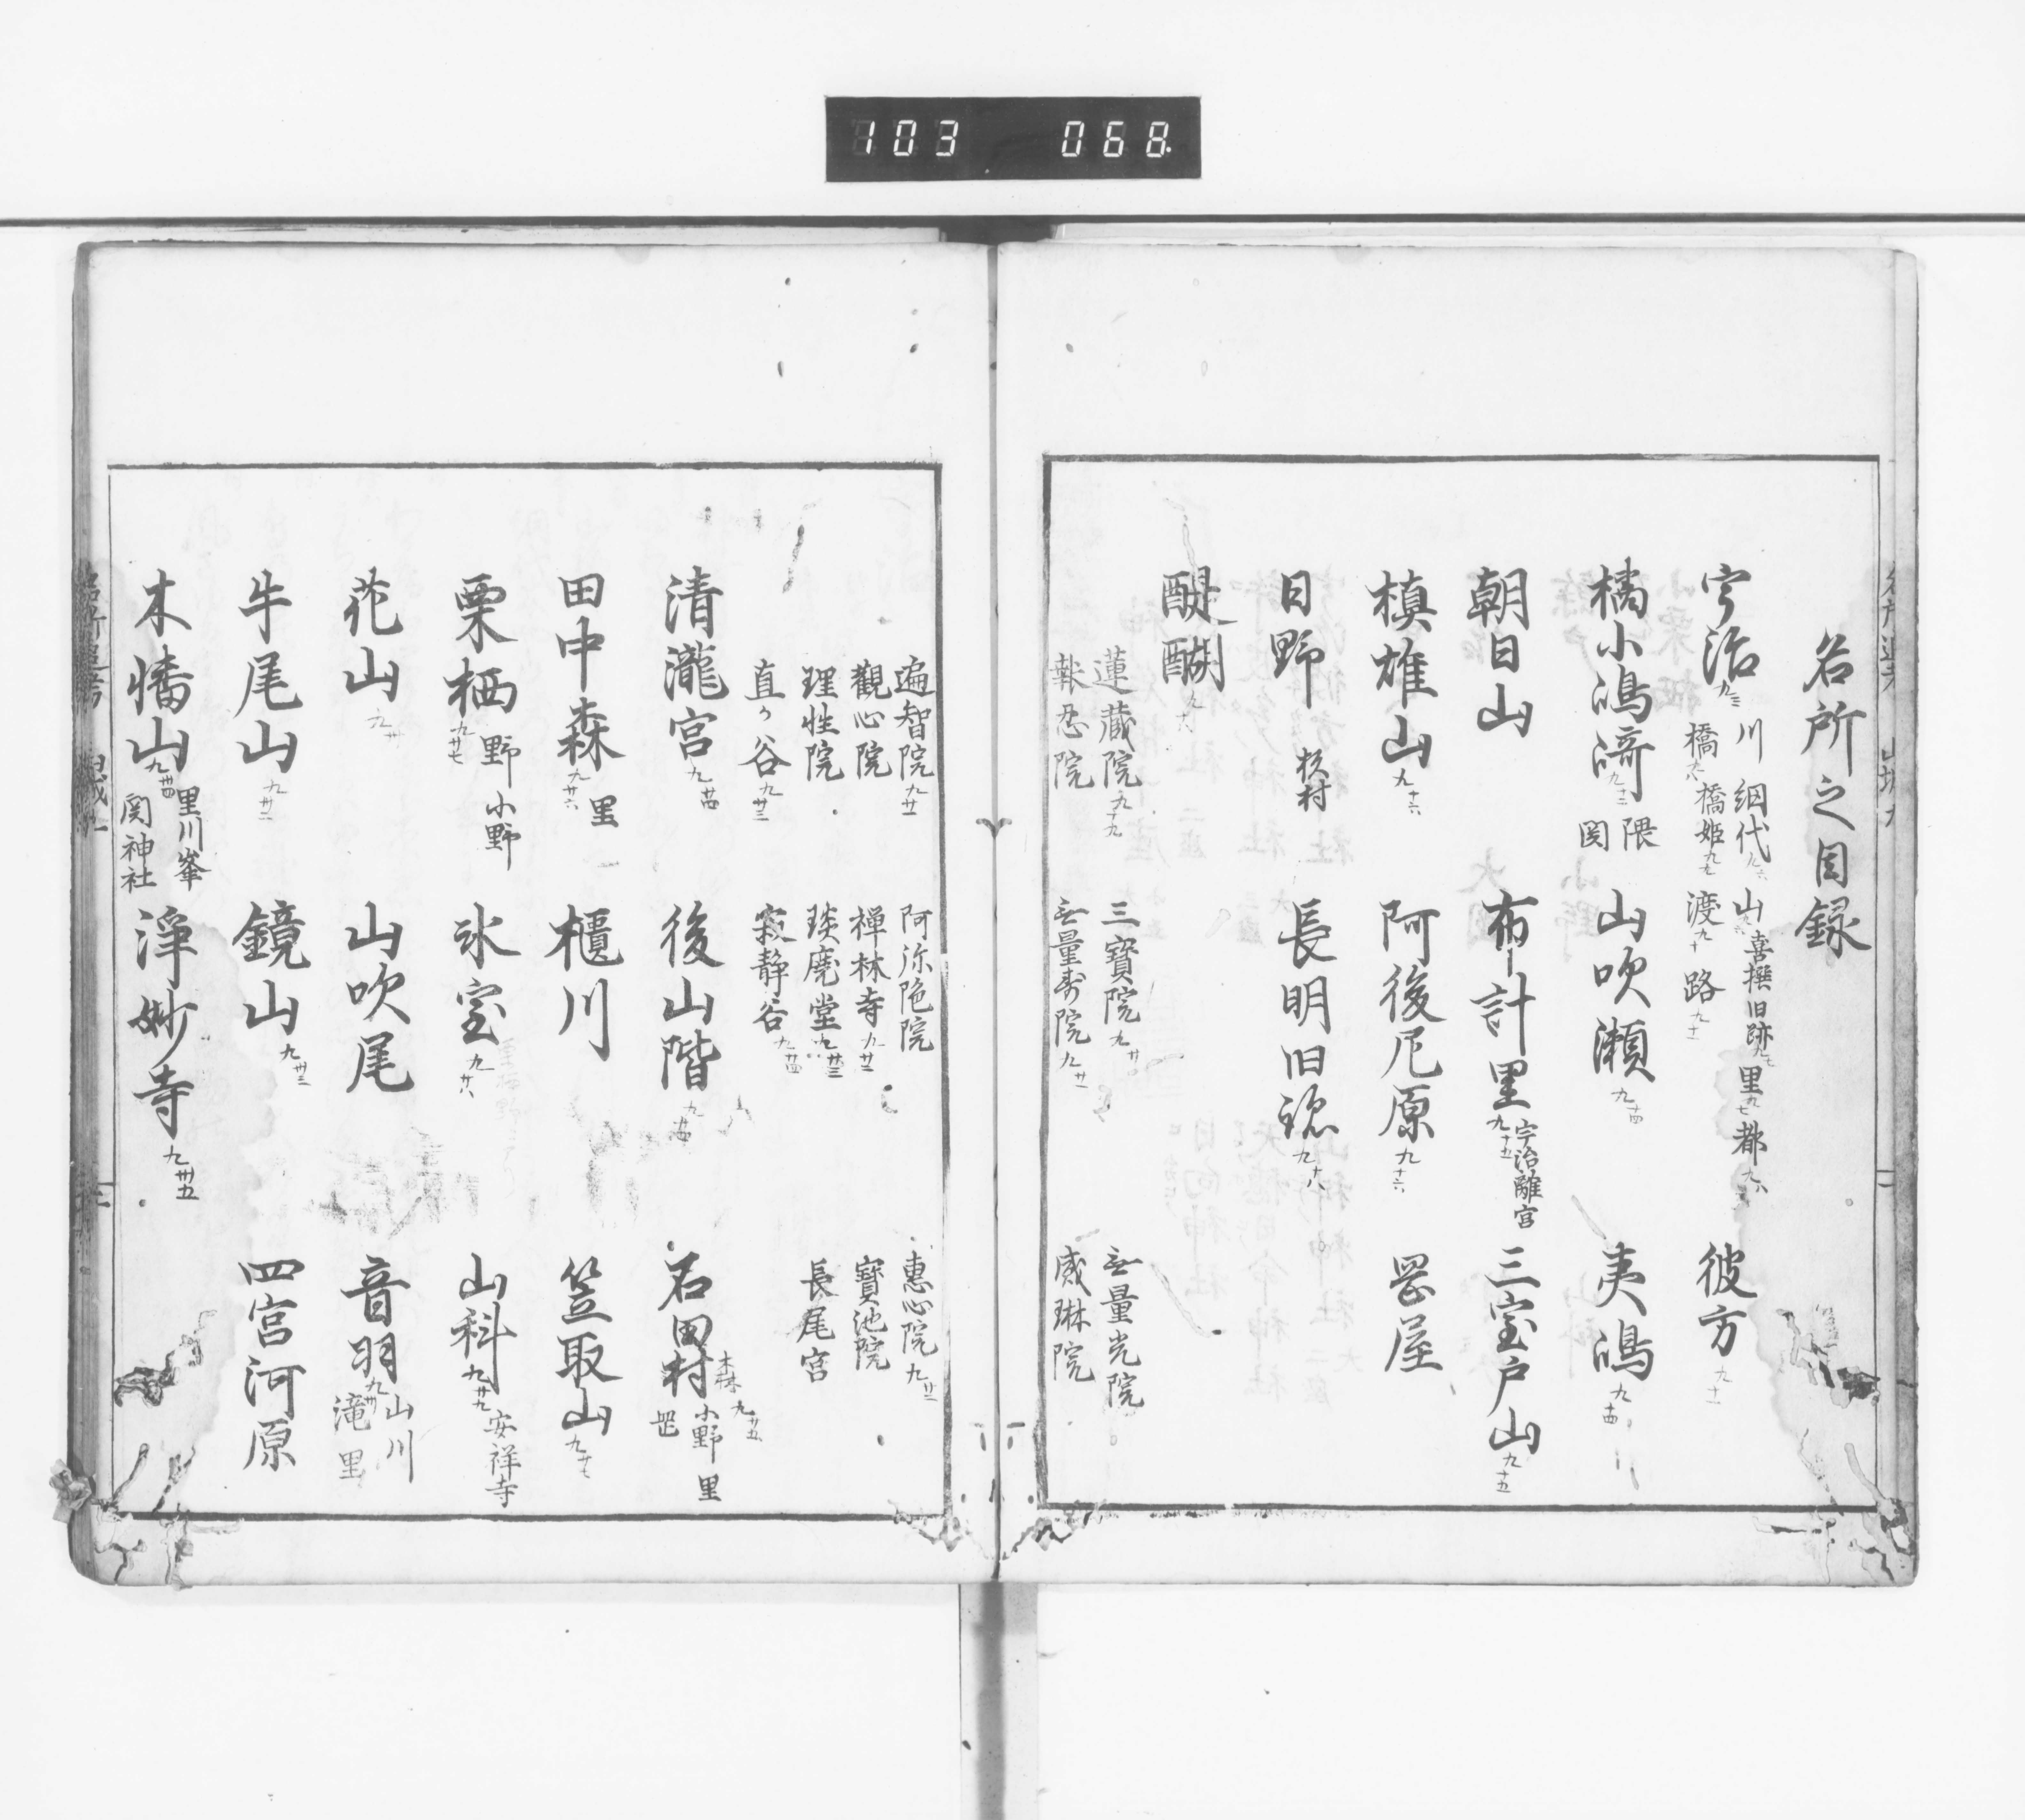 103 068
名所之目録
宇治 九三 川 網代 九六 山 喜撰旧跡 里 九七 都 九八
橋 橋姫 九七 渡 九十 路 九十一
彼方 九十一
橘小嶋﨑 九十二 隈 関 山吹瀬 九十四 夷嶋 九十四
朝日山 布計里 九十五 宇治離宮 三室戸山 九十五
槙雄山 九十六 阿後尼原 九十六 岡屋
日野 枚村 長明旧跡 九十八
醍醐
蓮蔵院 九十九 三寶院 九廿 無量光院
報恩院 無量寿院 九廿一 咸琳院
遍智院 九廿一 阿弥陀院 惠心院 九廿二
觀心院 禅林寺 九廿二 寳池院
理性院 琰魔堂 九廿三 長尾宮
直ヶ谷 九廿三 寂静谷 九廿四
清瀧宮 九廿四 後山階 九廿四 石田村 森 九廿五 小野 里
田中森 九廿六 里 櫃川 笠取山 九廿七
栗栖 九廿七 野 小野 氷室 九廿八 山科 九廿九 安祥寺
花山 九卅 山吹尾 音羽 九卅 山 川 滝 里
牛尾山 九卅二 鏡山 九卅三 四宮河原
木幡山 九卅四 里 川 峯 関 神社 淨妙寺 九卅五